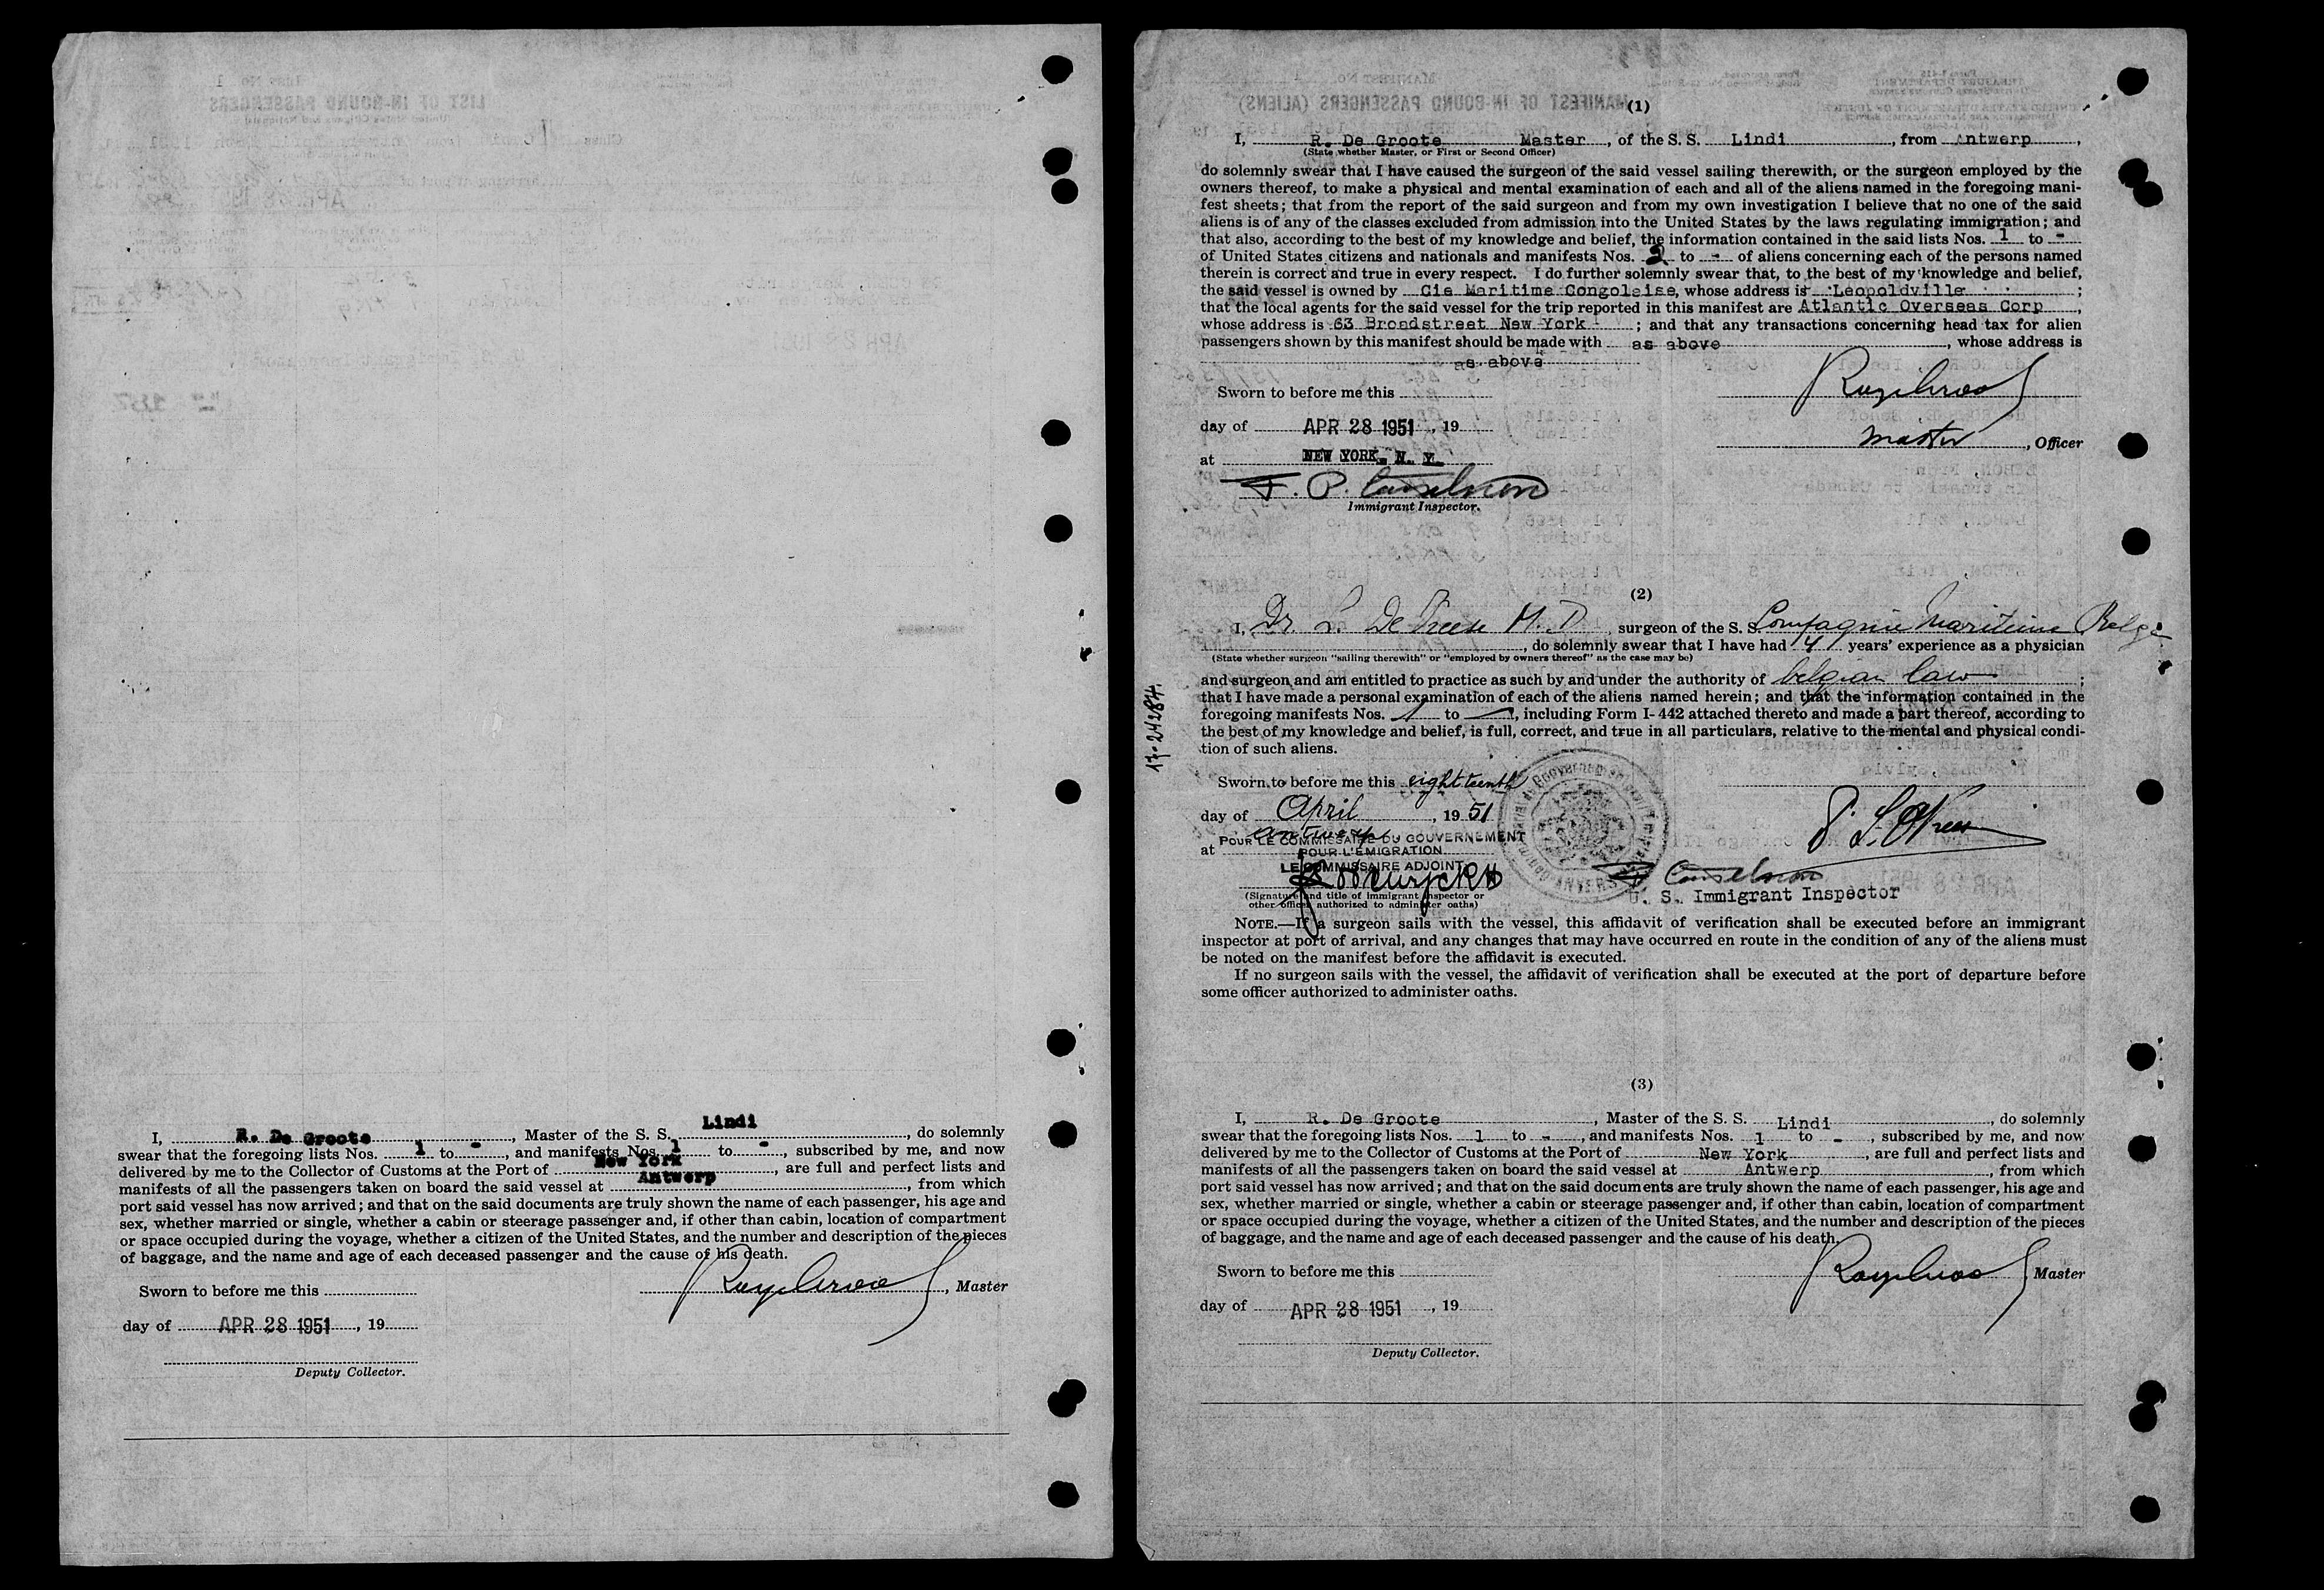 I, R. De Groote, Master of the S. S. Lindi, do solemnly
swear that the foregoing lists Nos. 1 to -, and manifests Nos. 1 to -, subscribed by me, and now
delivered by me to the Collector of Customs at the Port of New York, are full and perfect lists and
manifests of all the passengers taken on board the said vessel at Antwerp, from which
port said vessel has now arrived; and that on the said documents are truly shown the name of each passenger, his age and
sex, whether married or single, whether a cabin or steerage passenger and, if other than cabin, location of compartment
or space occupied during the voyage, whether a citizen of the United States, and the number and description of the pieces
of baggage, and the name and age of each deceased passenger and the cause of his death.
Sworn to before me this
, Master
day of APR 28 1951, 19
Deputy Collector.
(1)
I, R. De Groote Master, of the S. S. Lindi, from Antwerp,
(State whether Master, or First or Second Officer)
do solemnly swear that I have caused the surgeon of the said vessel sailing therewith, or the surgeon employed by the
owners thereof, to make a physical and mental examination of each and all of the aliens named in the foregoing mani-
fest sheets; that from the report of the said surgeon and from my own investigation I believe that no one of the said
aliens is of any of the classes excluded from admission into the United States by the laws regulating immigration; and
that also, according to the best of my knowledge and belief, the information contained in the said lists Nos. 1 to -
of United States citizens and nationals and manifests Nos. 2 to - of aliens concerning each of the persons named
therein is correct and true in every respect. I do further solemnly swear that, to the best of my knowledge and belief,
the said vessel is owned by Cie Maritime Congolaise, whose address is Leopoldville;
that the local agents for the said vessel for the trip reported in this manifest are Atlantic Overseas Corp,
whose address is 63 Broadstreet New York; and that any transactions concerning head tax for alien
passengers shown by this manifest should be made with as above, whose address is
as above
Sworn to before me this
day of APR 28 1951, 19
master, Officer
at NEW YORK, N. Y.
Immigrant Inspector.
(2)
I, Dr. L. De Vreese M.D, surgeon of the S. S. Compagnie Maritime Belge
, do solemnly swear that I have had 4 years' experience as a physician
(State whether surgeon "sailing therewith" or "employed by owners thereof" as the case may be)
and surgeon and am entitled to practice as such by and under the authority of belgian law;
that I have made a personal examination of each of the aliens named herein; and that the information contained in the
foregoing manifests Nos. 1 to -, including Form I-442 attached thereto and made a part thereof, according to
the best of my knowledge and belief, is full, correct, and true in all particulars, relative to the mental and physical condi-
tion of such aliens.
17-24284.
Sworn to before me this eightteenth
day of April, 1951
at antwerp
POUR LE COMMISSAIRE DU GOUVERNEMENT
POUR L'EMIGRATION
LE COMMISSAIRE ADJOINT
ANVERS
(Signature and title of immigrant inspector or
other officer authorized to administer oaths)
U. S. Immigrant Inspector
NOTE.—If a surgeon sails with the vessel, this affidavit of verification shall be executed before an immigrant
inspector at port of arrival, and any changes that may have occurred en route in the condition of any of the aliens must
be noted on the manifest before the affidavit is executed.
If no surgeon sails with the vessel, the affidavit of verification shall be executed at the port of departure before
some officer authorized to administer oaths.
(3)
I, R. De Groote, Master of the S. S. Lindi, do solemnly
swear that the foregoing lists Nos. 1 to -, and manifests Nos. 1 to -, subscribed by me, and now
delivered by me to the Collector of Customs at the Port of New York, are full and perfect lists and
manifests of all the passengers taken on board the said vessel at Antwerp, from which
port said vessel has now arrived; and that on the said documents are truly shown the name of each passenger, his age and
sex, whether married or single, whether a cabin or steerage passenger and, if other than cabin, location of compartment
or space occupied during the voyage, whether a citizen of the United States, and the number and description of the pieces
of baggage, and the name and age of each deceased passenger and the cause of his death.
Sworn to before me this
Master
day of APR 28 1951, 19
Deputy Collector.